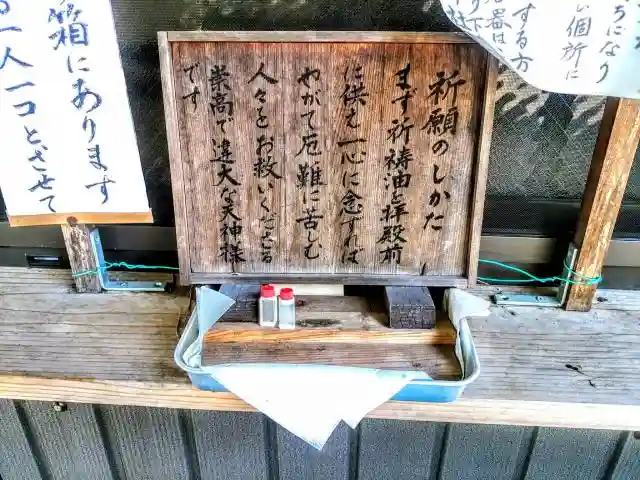 祈願のしかた
まず祈祷油を拝殿前
に供え一心に念ずれば
やがて厄難に苦しむ
人々をお救いくださる
崇高で遠大な天神様
です
うになり
い個所に
する方
箱にあります
る一人一コとさせて